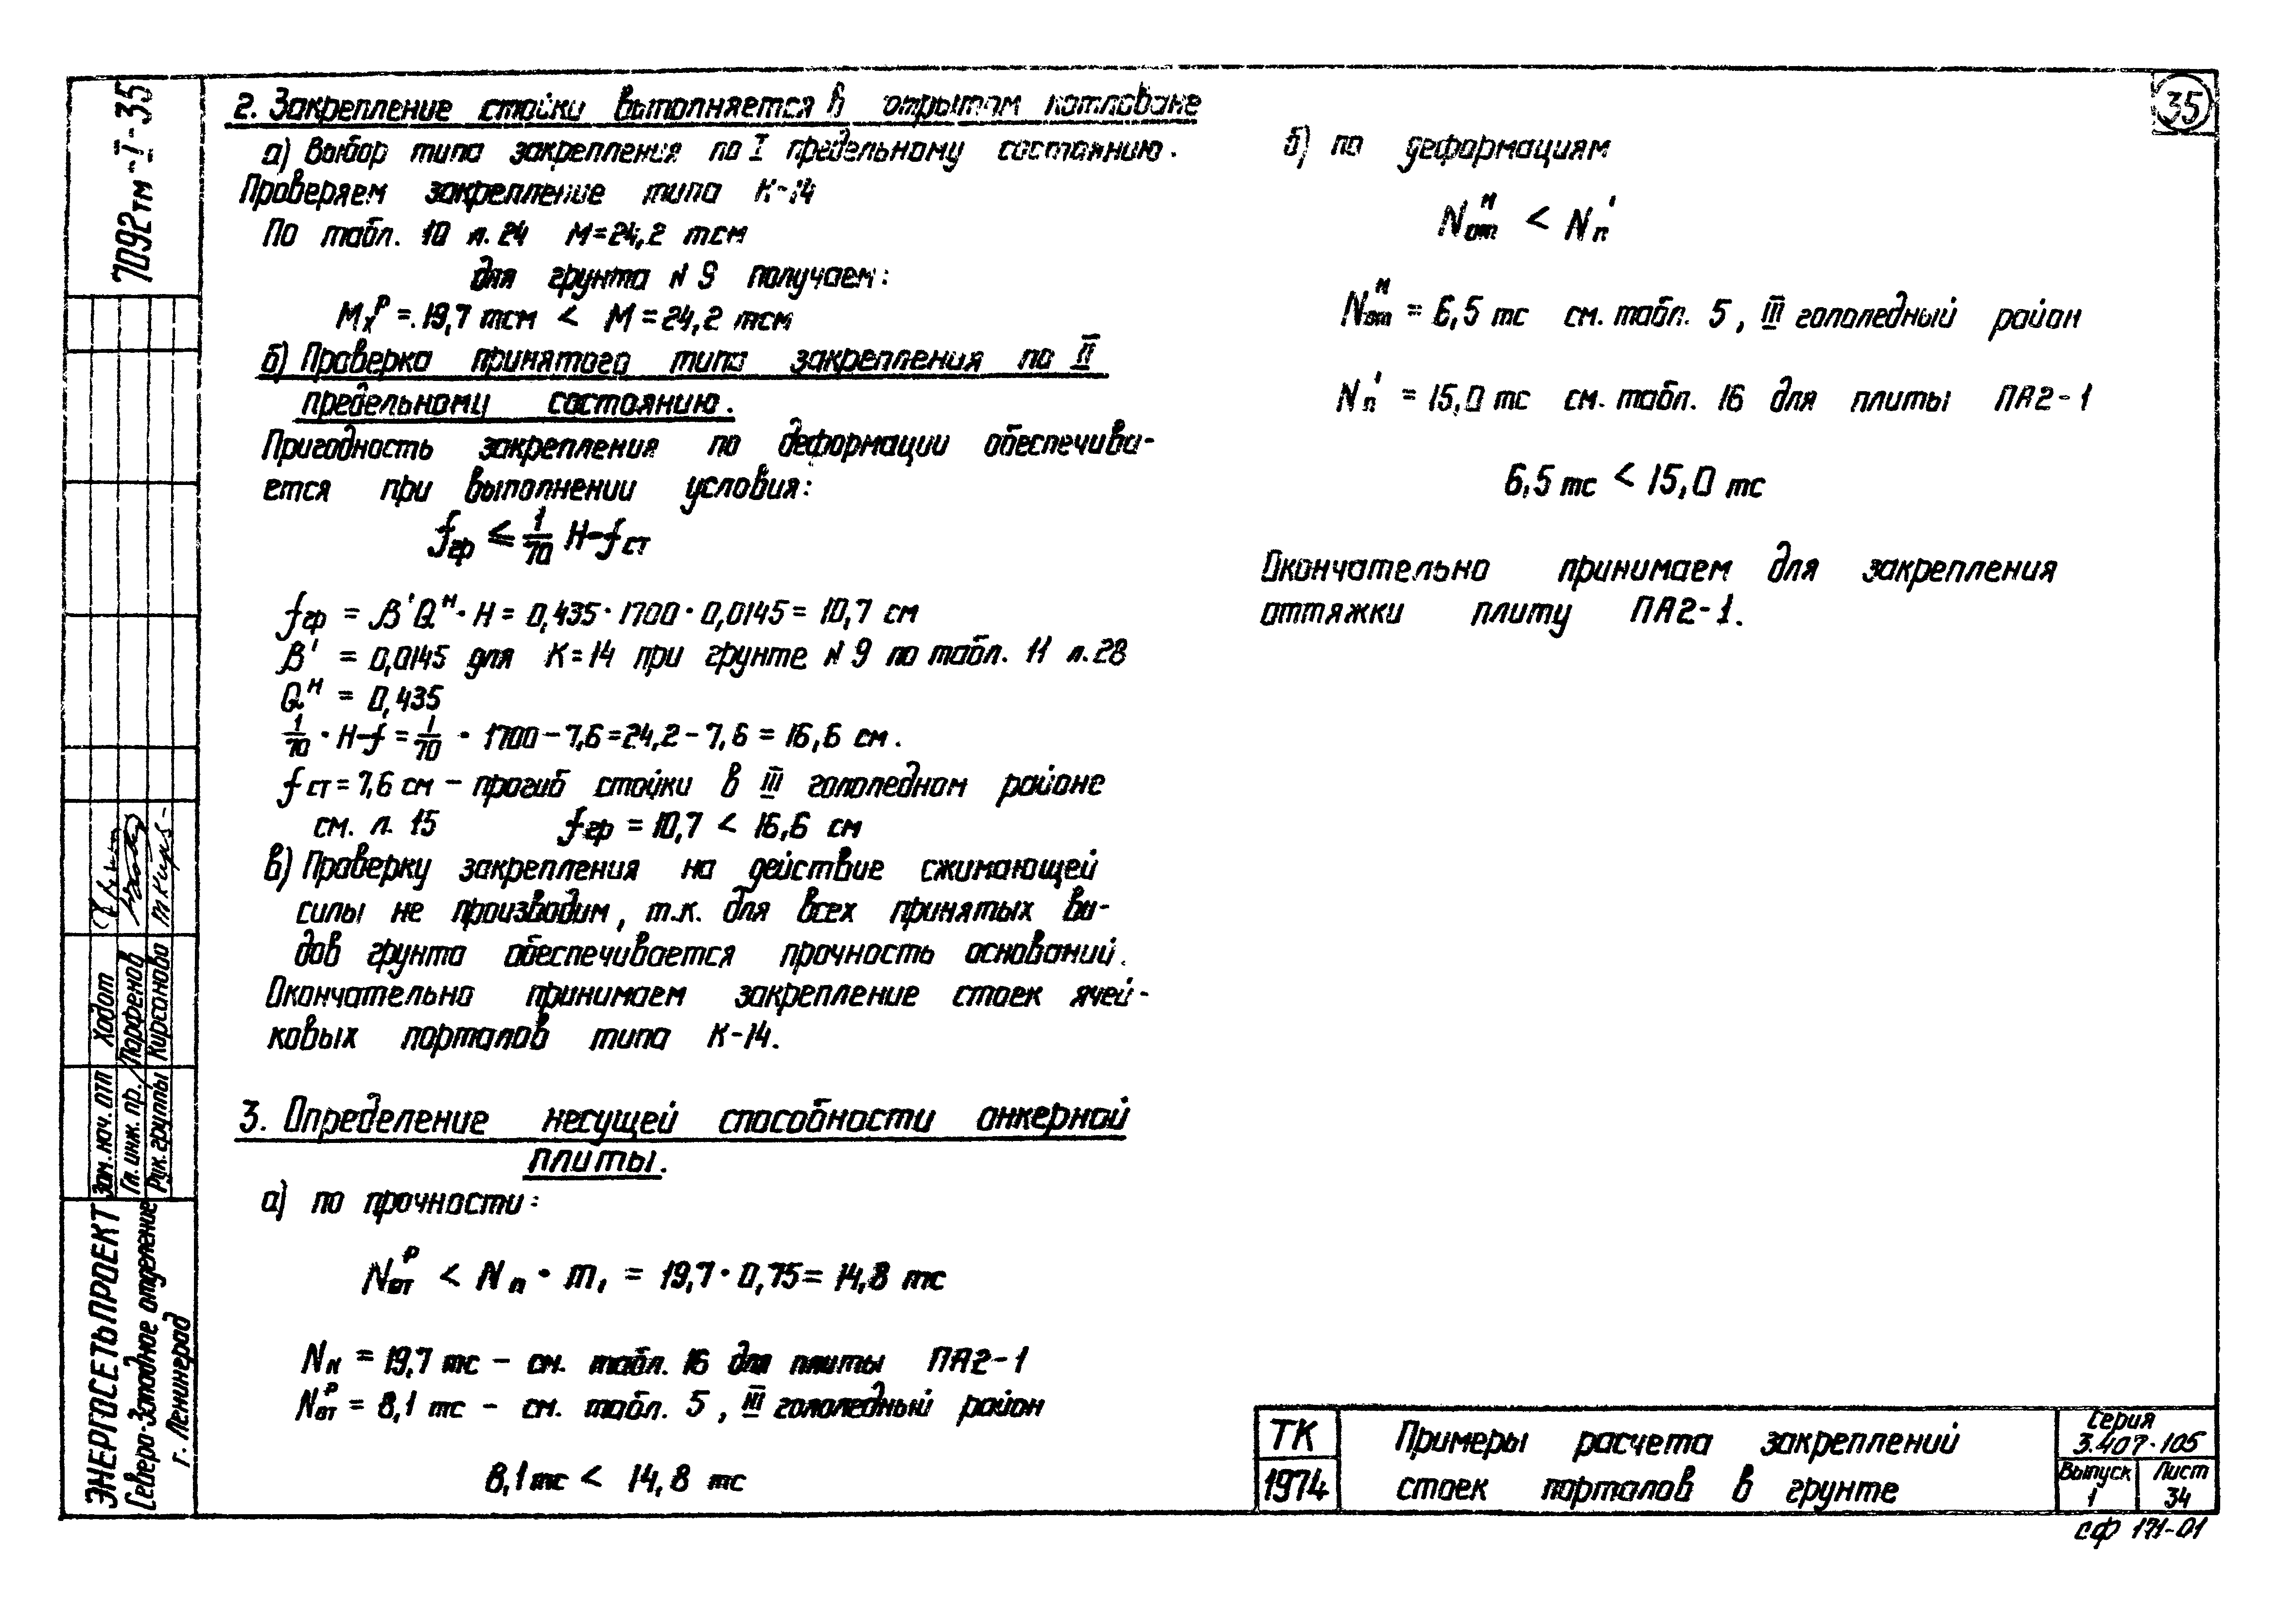 35
7092тм-I-35
2. Закрепление стойки выполняется в отрытом котловане
а) Выбор типа закрепления по I предельному состоянию.
Проверяем закрепление типа К-14
По табл. 10 л. 24 М=24,2 тсм
для грунта N 9 получаем:
Mxᴾ =. 19,7 тсм < М = 24,2 тсм
б) Проверка принятого типа закрепления по II
предельному состоянию.
Пригодность закрепления по деформации обеспечива-
ется при выполнении условия:
fгр ≤ 1/70 Н-fст
fгр = β'Qᴴ · Н = 0,435 · 1700 · 0,0145 = 10,7 см
β' = 0,0145 для К=14 при грунте N 9 по табл. 11 л.28
Qᴴ = 0,435
1/70 · Н-f = 1/70 · 1700-7,6=24,2-7,6 = 16,6 см.
fст = 7,6 см - прогиб стойки в III гололедном районе
см. л. 15 fгр = 10,7 < 16,6 см
в) Проверку закрепления на действие сжимающей
силы не производим, т.к. для всех принятых ви-
дов грунта обеспечивается прочность оснований.
Окончательно принимаем закрепление стоек ячей-
ковых порталов типа К-14.
3. Определение несущей способности анкерной
плиты.
а) по прочности:
Nотᴾ < Nп · m₁ = 19,7 · 0,75 = 14,8 тс
Nп = 19,7 тс - см. табл. 16 для плиты ПА2-1
Nотᴾ = 8,1 тс - см. табл. 5, III гололедный район
8,1 тс < 14,8 тс
б) по деформациям
Nотᴴ < Nп'
Nотᴴ = 6,5 тс см. табл. 5, III гололедный район
Nп' = 15,0 тс см. табл. 16 для плиты ПА2-1
6,5 тс < 15,0 тс
Окончательно принимаем для закрепления
оттяжки плиту ПА2-1.
Зам. нач. отп Ходот
Гл. инж. пр. Парфенов
Рук. группы Кирсанова
ЭНЕРГОСЕТЬПРОЕКТ
Северо-Западное отделение
г. Ленинград
ТК
1974
Примеры расчета закреплений
стоек порталов в грунте
Серия
3.407-105
Выпуск
1
Лист
34
сф 171-01